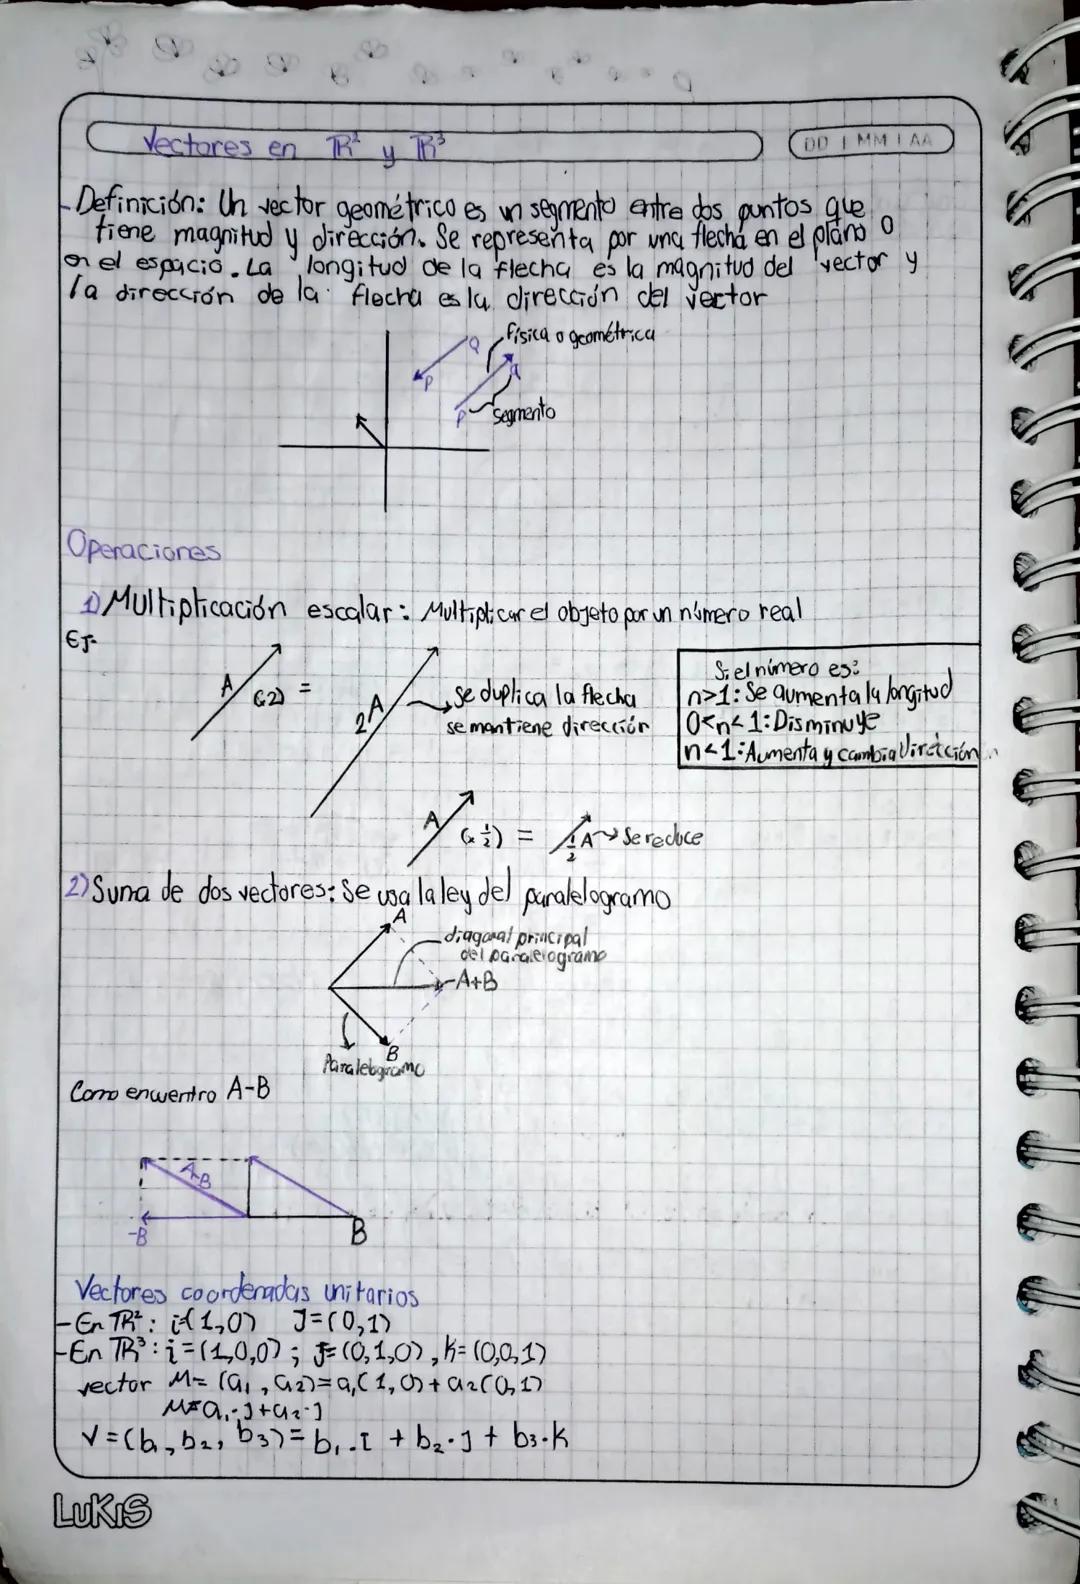 Vectores en ℝ² y ℝ³
DD | MM | AA
- Definición: Un vector geométrico es un segmento entre dos puntos que
tiene magnitud y dirección. Se representa por una flecha en el plano o
en el espacio. La longitud de la flecha es la magnitud del vector y
la dirección de la flecha es la dirección del vector
física o geométrica
Q
P
Q
P
segmento
Operaciones
1) Multiplicación escalar: Multiplicar el objeto por un número real
Ej-
A (·2) = 2A
se duplica la flecha
se mantiene dirección
Si el número es:
n>1: Se aumenta la longitud
0<n<1: Disminuye
n<1: Aumenta y cambia dirección
A (x 1/2) = 1/2 A → Se reduce
2) Suma de dos vectores: Se usa la ley del paralelogramo
A
diagonal principal
del paralelogramo
A+B
B
Paralelogramo
Como encuentro A-B
A-B
-B
B
Vectores coordenadas unitarios
- En ℝ²: i=(1,0) J=(0,1)
- En ℝ³: i=(1,0,0); J=(0,1,0), K=(0,0,1)
vector M= (a₁, a₂)=a₁(1,0)+a₂(0,1)
M=a₁·J+a₂·J
V=(b₁, b₂, b₃)= b₁·i + b₂·J + b₃·k
LUKIS